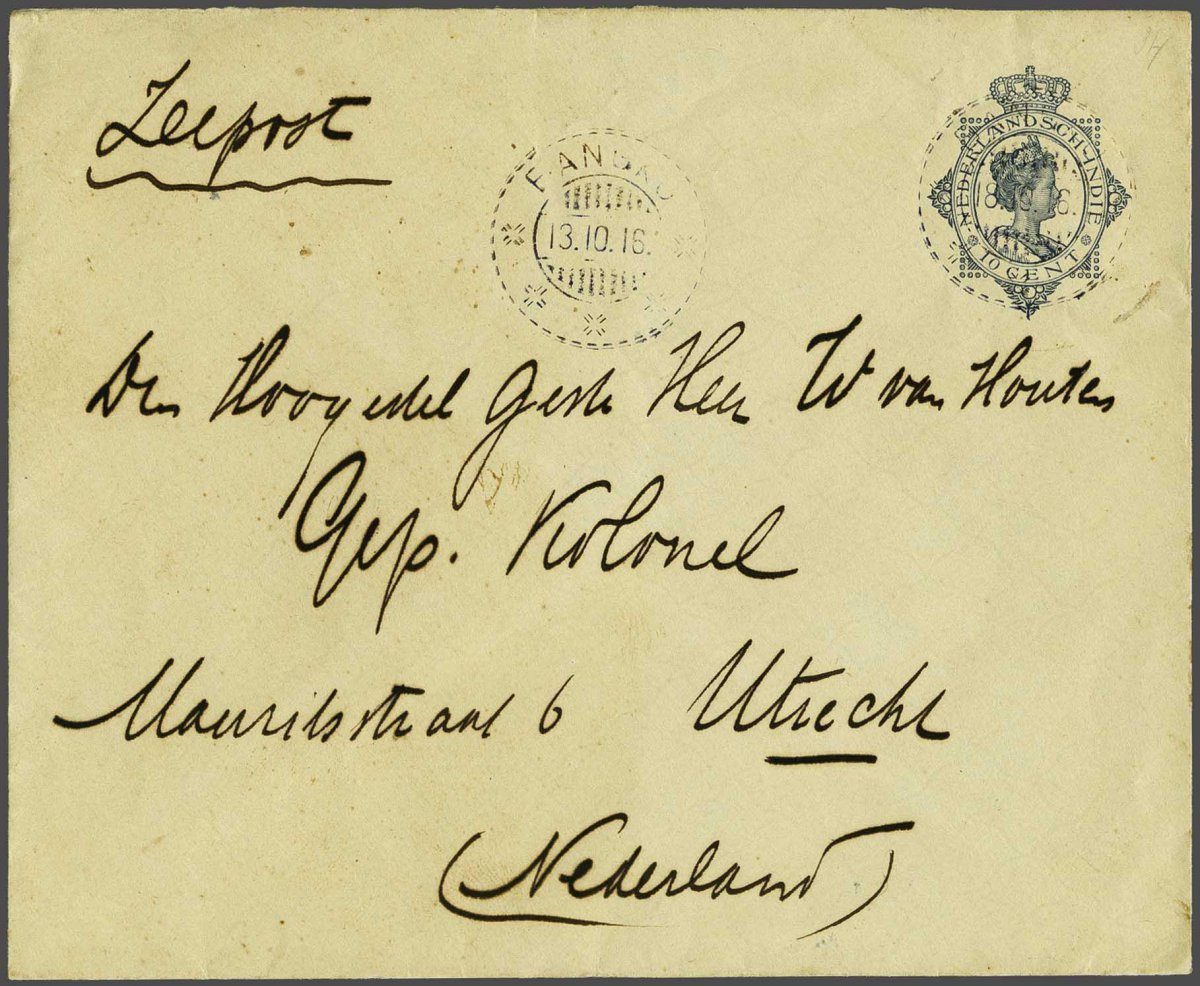 Zeepost
13.10.16.
NEDERLANDSCH-INDIE
10 CENT
Den Hoogedel Gestr Heer W van Houten
Gep. Kolonel
Mauritsstraat 6 Utrecht
(Nederland)